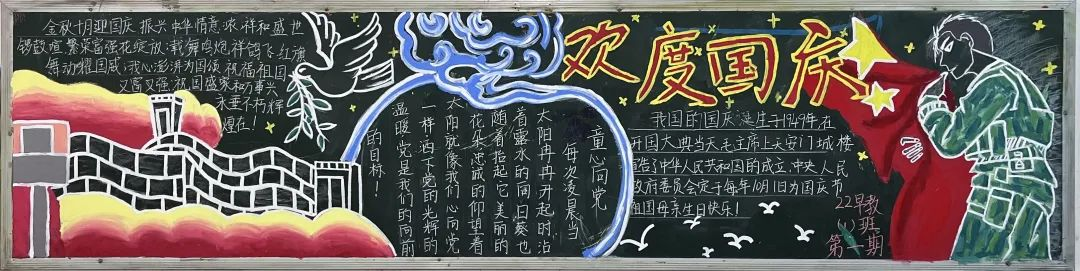 金秋十月迎国庆,振兴中华情意浓,祥和盛世
锣鼓喧,繁荣富强花绽放,载舞鸣炮祥鸽飞,红旗
舞动耀国威,我心澎湃为国颂,祝福祖国
又富又强,祝国盛家和万事兴
永垂不朽辉
煌在!
欢度国庆
童心向党
每次凌晨当
太阳冉冉升起时,沾
着露水的向日葵也
随着抬起它美丽的
花朵,忠诚的仰望着
太阳,就像我们心向党
一样,洒下党的光辉的
温暖,党是我们的向前
的目标!
我国的国庆诞生于1949年在
开国大典当天毛主席上天安门城楼
宣告了中华人民共和国的成立,中央人民
政府委员会定于每年10月1日为国庆节
祖国母亲生日快乐!
22早教
(1)班
第一期